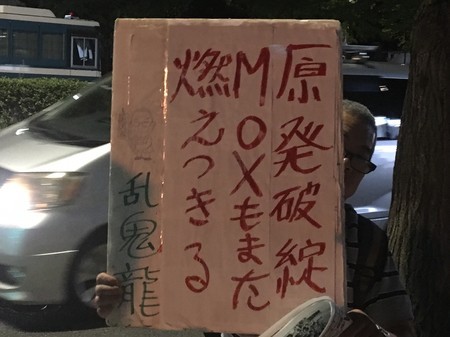 原発破綻
MOXもまた
燃えつきる
乱鬼龍